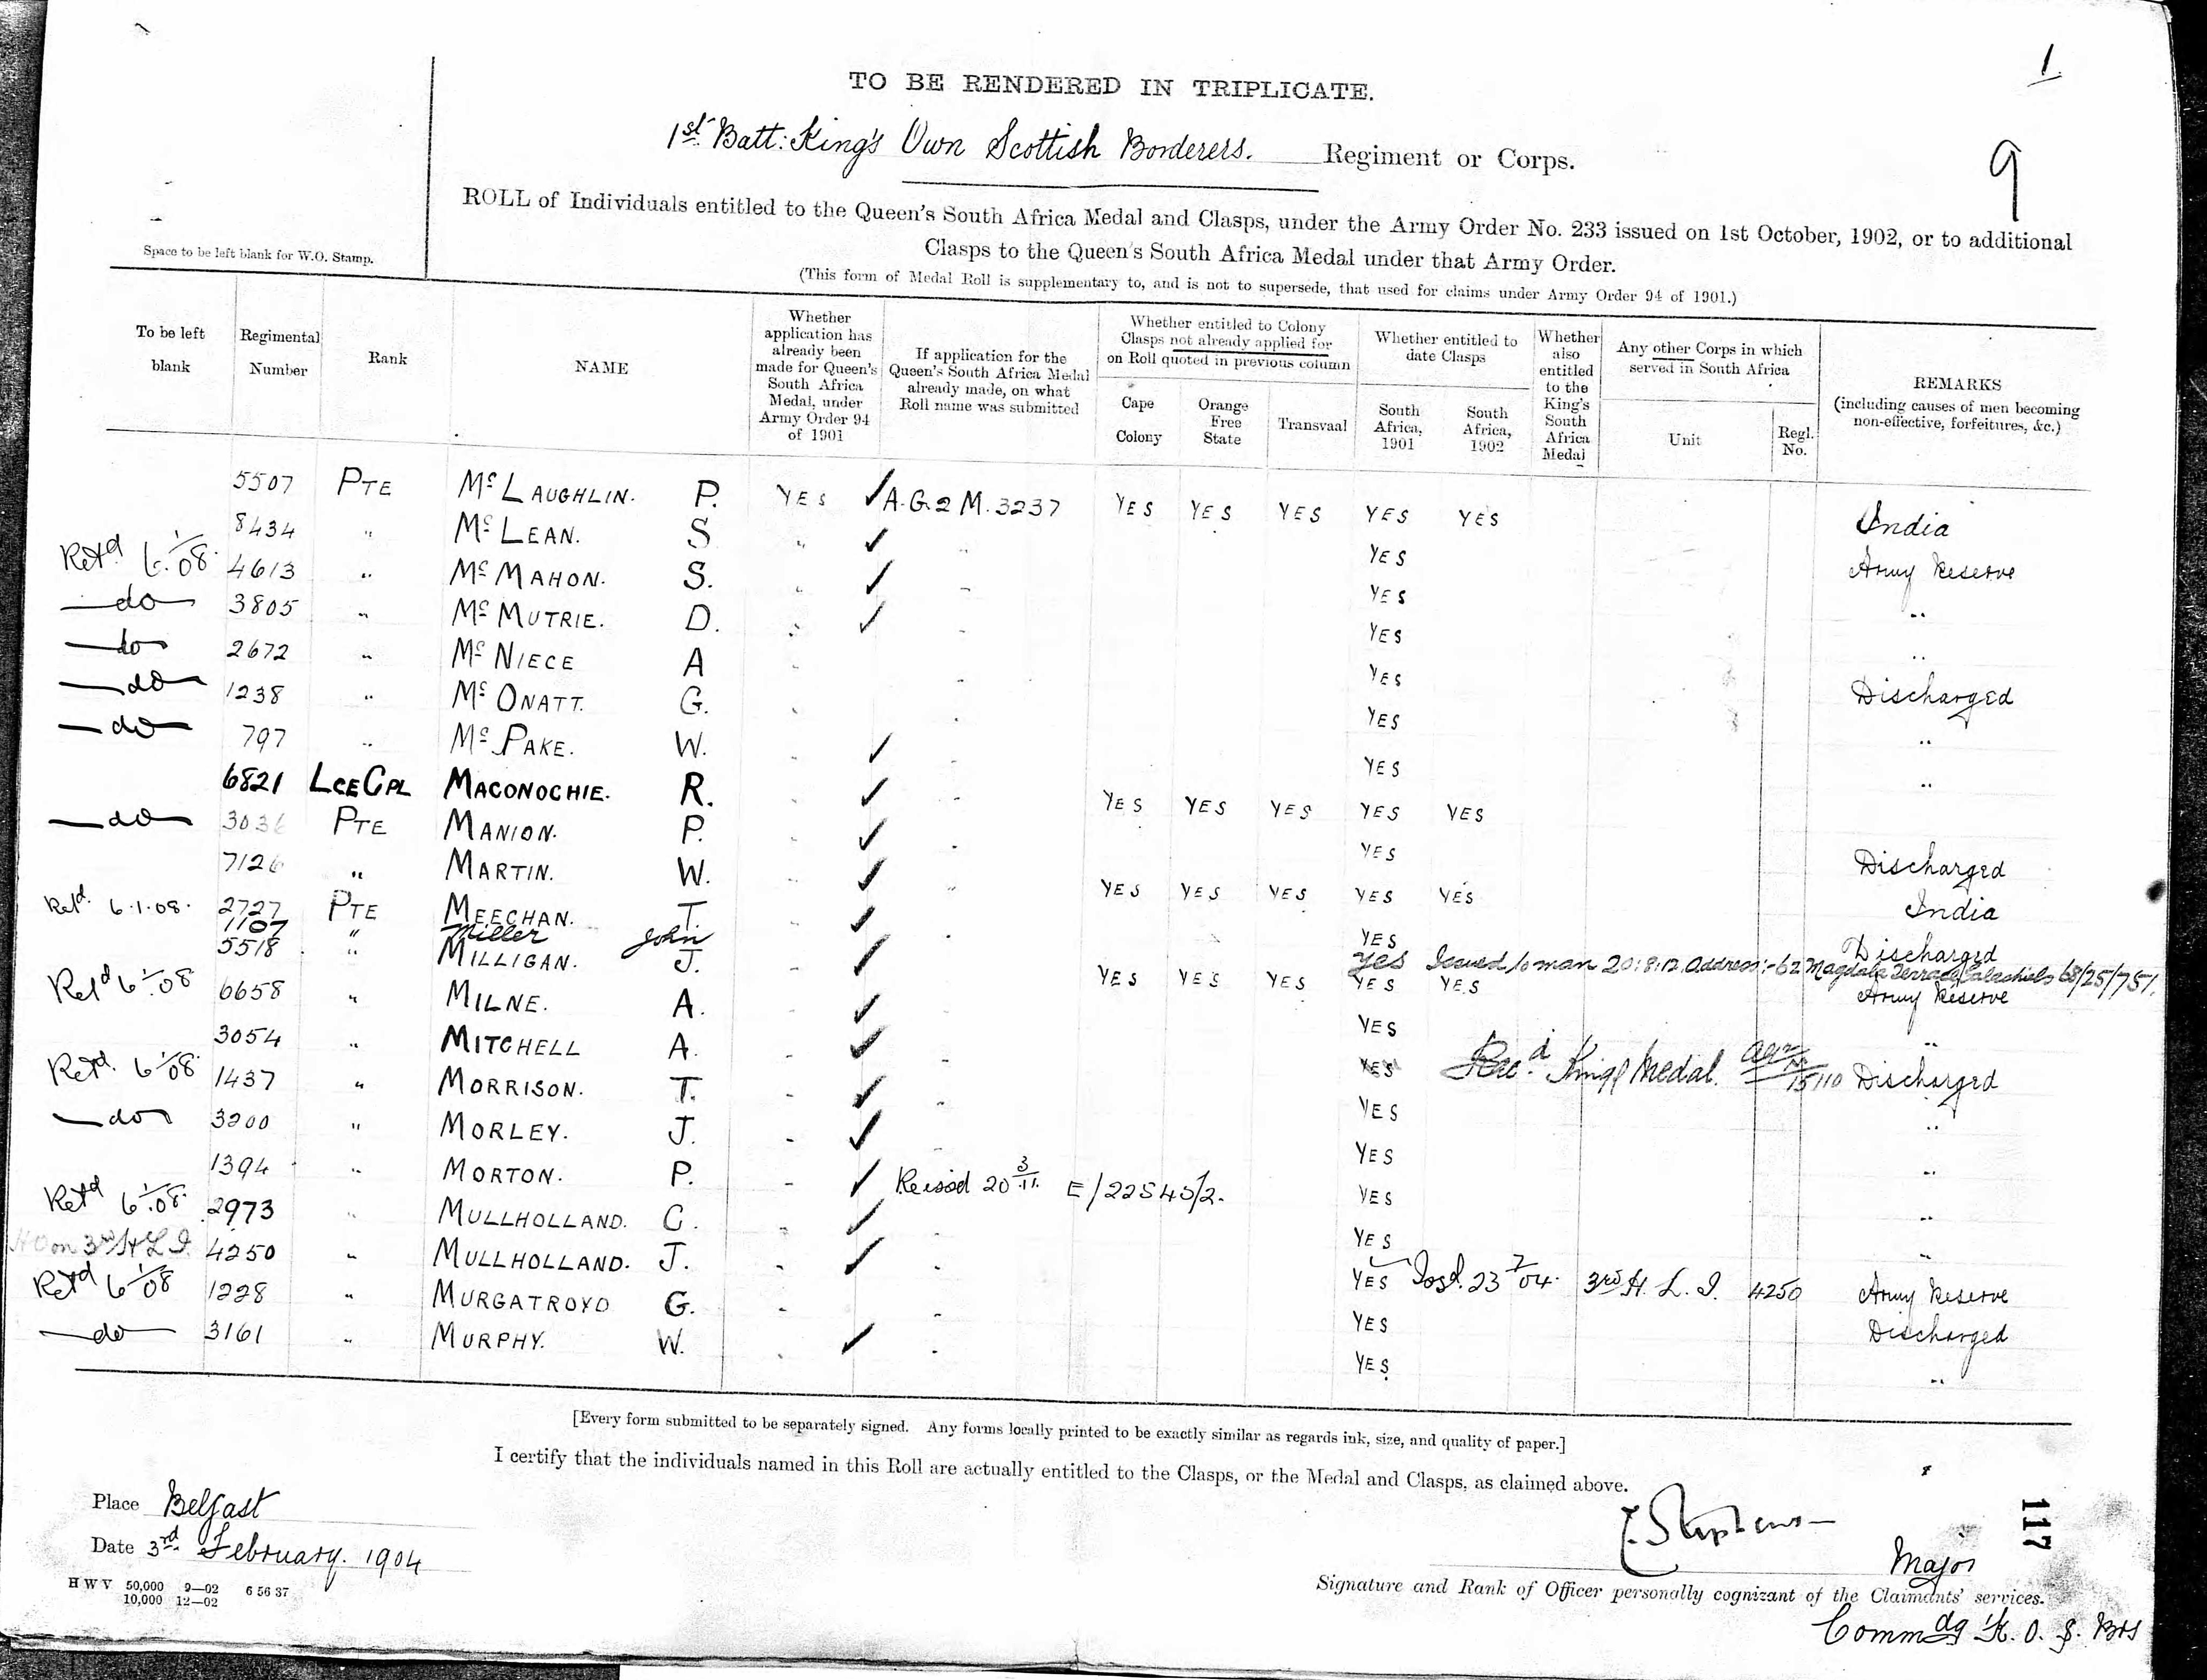 1
TO BE RENDERED IN TRIPLICATE.
1st Batt: King's Own Scottish Borderers. Regiment or Corps.
9
ROLL of Individuals entitled to the Queen's South Africa Medal and Clasps, under the Army Order No. 233 issued on 1st October, 1902, or to additional
Clasps to the Queen's South Africa Medal under that Army Order.
(This form of Medal Roll is supplementary to, and is not to supersede, that used for claims under Army Order 94 of 1901.)
Space to be left blank for W.O. Stamp.
To be left blank
Regimental Number
Rank
NAME
Whether application has already been made for Queen's South Africa Medal, under Army Order 94 of 1901
If application for the Queen's South Africa Medal already made, on what Roll name was submitted
Whether entitled to Colony Clasps not already applied for on Roll quoted in previous column
Cape Colony
Orange Free State
Transvaal
Whether entitled to date Clasps
South Africa, 1901
South Africa, 1902
Whether also entitled to the King's South Africa Medal
Any other Corps in which served in South Africa
Unit
Regl. No.
REMARKS
(including causes of men becoming non-effective, forfeitures, &c.)
5507 PTE McLAUGHLIN. P. YES ✓ A.G.2 M.3237 YES YES YES YES YES India
8434 " McLEAN. S " ✓ " YES Army Reserve
Retd. 6/1/08. 4613 " McMAHON. S. " ✓ " YES "
—do— 3805 " McMUTRIE. D. " ✓ " YES "
—do— 2672 " McNIECE A " " YES Discharged
—do— 1238 " McONATT. G. " " YES "
—do— 797 " McPAKE. W. " ✓ YES "
6821 LCE CPL MACONOCHIE. R. " ✓ " YES YES YES YES YES
—do— 3036 PTE MANION. P. " ✓ " YES Discharged
7126 " MARTIN. W. " ✓ " YES YES YES YES YES India
Retd. 6.1.08. 2727 PTE MEECHAN. T. ✓ YES Discharged
1107 " Miller John yes Issued to man 20:8:12. Address:- 62 Magdala Terrace Galashiels 68/25/751.
5518 " MILLIGAN. J. " ✓ YES YES YES YES YES Army Reserve
Retd 6/1/08 6658 " MILNE. A. " ✓ YES "
3054 " MITCHELL A. " ✓ " YES Recd. Kings Medal. AG2/M 15110 Discharged
Retd. 6/1/08. 1437 " MORRISON. T. " ✓ " YES "
—do— 3200 " MORLEY. J. " ✓ YES "
1394 " MORTON. P. " ✓ Reissd 20 3/11. E/22545/2. YES "
Retd 6/1/08. 2973 " MULLHOLLAND. C. " ✓ YES "
on 3rd H L I. 4250 " MULLHOLLAND. J. " ✓ " YES Issd. 23 7/04. 3rd H. L. I. 4250 Army Reserve
Retd 6/1/08 1228 " MURGATROYD G. " " YES Discharged
—do— 3161 " MURPHY. W. " ✓ " YES "
[Every form submitted to be separately signed. Any forms locally printed to be exactly similar as regards ink, size, and quality of paper.]
I certify that the individuals named in this Roll are actually entitled to the Clasps, or the Medal and Clasps, as claimed above.
Place Belfast
Date 3rd. February. 1904
H W V 50,000 9—02 6 56 37
10,000 12—02
E. Stephens
Major
Signature and Rank of Officer personally cognizant of the Claimants' services.
Commdg K. O. S. Brs
117